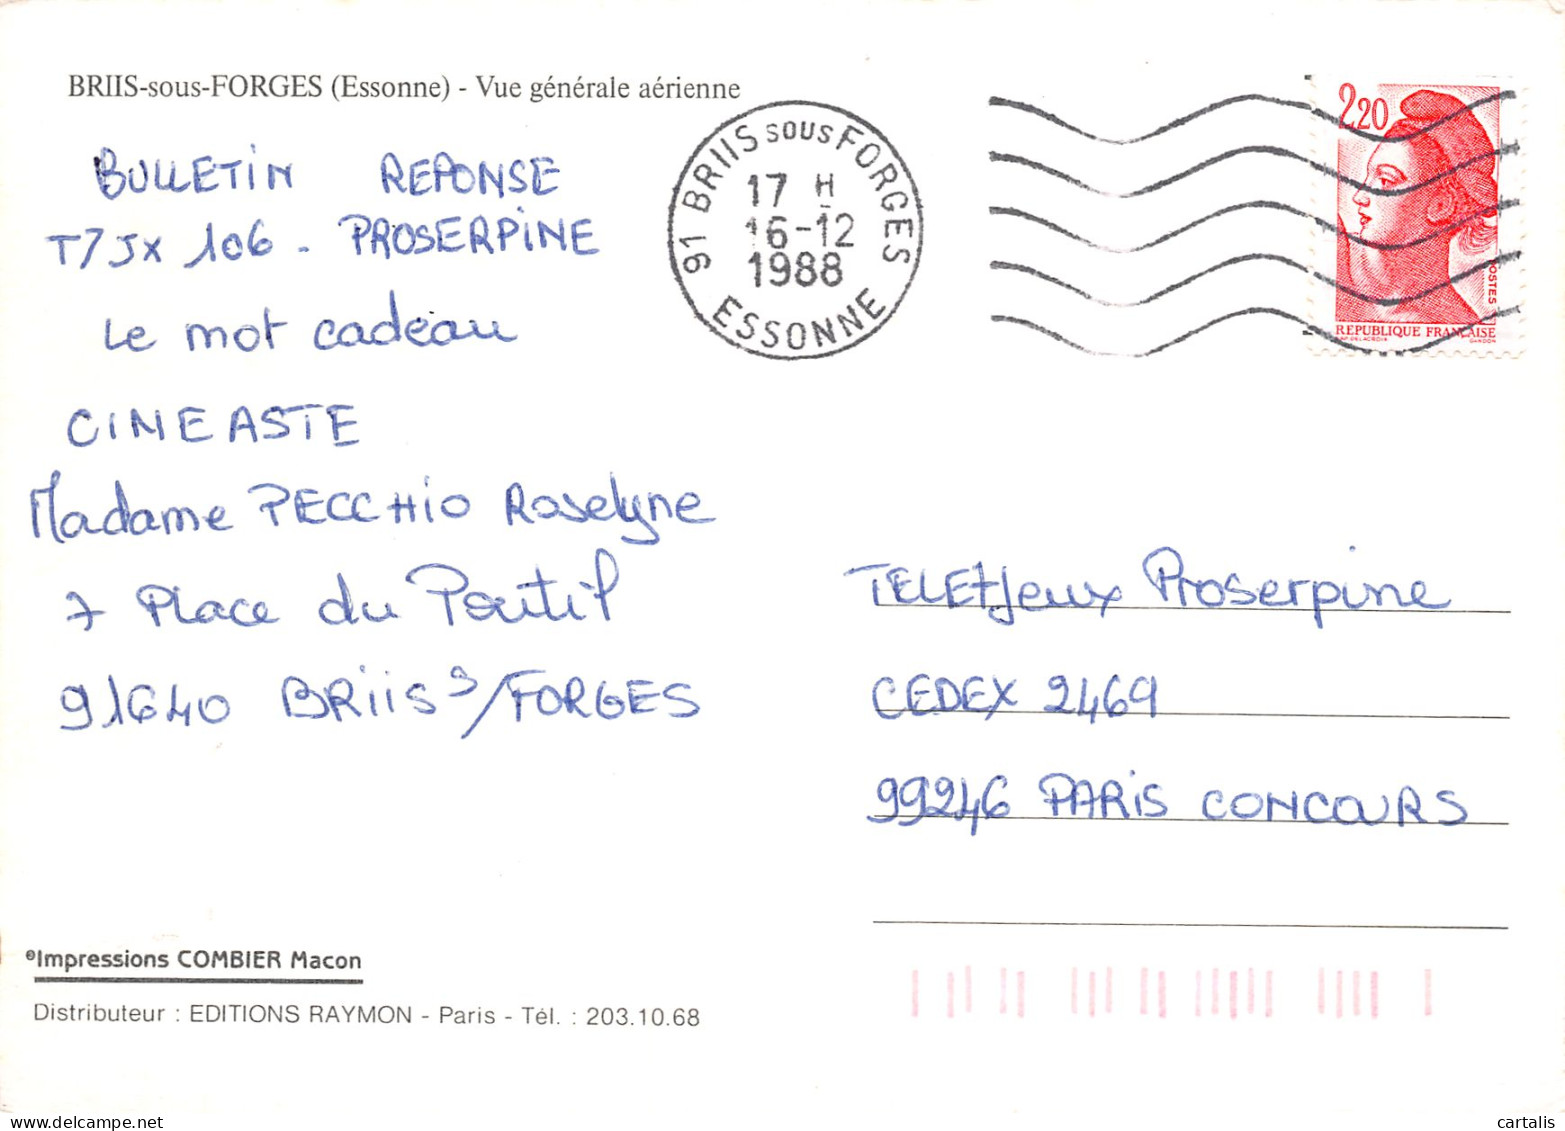 BRIIS-sous-FORGES (Essonne) - Vue générale aérienne
BULLETIN REPONSE
T7JX 106 - PROSERPINE
Le mot cadeau
CINEASTE
Madame PECCHIO Roselyne
7 Place du Poutil
91640 BRIIS S/FORGES
©Impressions COMBIER Macon
Distributeur : EDITIONS RAYMON - Paris - Tél. : 203.10.68
91 BRIIS SOUS FORGES
17 H
16-12
1988
ESSONNE
2,20
POSTES
REPUBLIQUE FRANÇAISE
AP. DELACROIX GANDON
TELE7Jeux Proserpine
CEDEX 2469
99246 PARIS CONCOURS
cartalis
delcampe.net